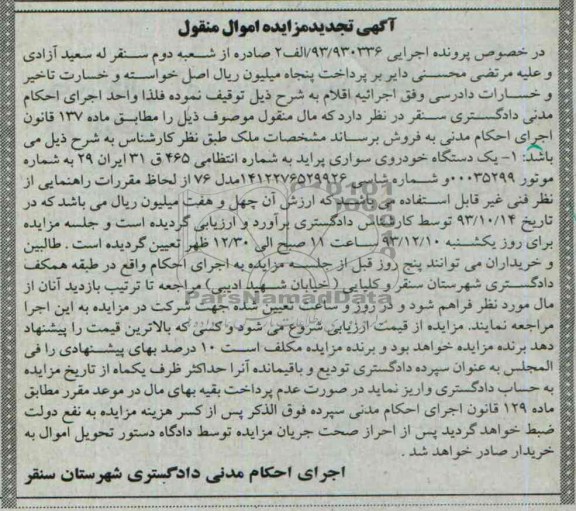 آگهی تجدیدمزایده اموال منقول
در خصوص پرونده اجرایی ۹۳/۹۳۰۳۳۶/الف۲ صادره از شعبه دوم سنقر له سعید آزادی
و علیه مرتضی محسنی دایر بر پرداخت پنجاه میلیون ریال اصل خواسته و خسارت تاخیر
و خسارات دادرسی وفق اجرائیه اقلام به شرح ذیل توقیف نموده فلذا واحد اجرای احکام
مدنی دادگستری سنقر در نظر دارد که مال منقول موصوف ذیل را مطابق ماده ۱۳۷ قانون
اجرای احکام مدنی به فروش برساند مشخصات ملک طبق نظر کارشناس به شرح ذیل می
باشد: ۱- یک دستگاه خودروی سواری پراید به شماره انتظامی ۴۶۵ ق ۳۱ ایران ۲۹ به شماره
موتور ۰۰۰۳۵۲۹۹ و شماره شاسی ۱۴۱۲۲۷۶۵۲۹۹۲۶ مدل ۷۶ از لحاظ مقررات راهنمایی از
نظر فنی غیر قابل استفاده می باشد که ارزش آن چهل و هفت میلیون ریال می باشد که در
تاریخ ۹۳/۱۰/۱۴ توسط کارشناس دادگستری برآورد و ارزیابی گردیده است و جلسه مزایده
برای روز یکشنبه ۹۳/۱۲/۱۰ ساعت ۱۱ صبح الی ۱۲/۳۰ ظهر تعیین گردیده است . طالبین
و خریداران می توانند پنج روز قبل از جلسه مزایده به اجرای احکام واقع در طبقه همکف
دادگستری شهرستان سنقر و کلیایی (خیابان شهید ادیبی) مراجعه تا ترتیب بازدید آنان از
مال مورد نظر فراهم شود و در روز و ساعت تعیین شده جهت شرکت در مزایده به این اجرا
مراجعه نمایند. مزایده از قیمت ارزیابی شروع می شود و کسی که بالاترین قیمت را پیشنهاد
دهد برنده مزایده خواهد بود و برنده مزایده مکلف است ۱۰ درصد بهای پیشنهادی را فی
المجلس به عنوان سپرده دادگستری تودیع و باقیمانده آنرا حداکثر ظرف یکماه از تاریخ مزایده
به حساب دادگستری واریز نماید در صورت عدم پرداخت بقیه بهای مال در موعد مقرر مطابق
ماده ۱۲۹ قانون اجرای احکام مدنی سپرده فوق الذکر پس از کسر هزینه مزایده به نفع دولت
ضبط خواهد گردید پس از احراز صحت جریان مزایده توسط دادگاه دستور تحویل اموال به
خریدار صادر خواهد شد .
اجرای احکام مدنی دادگستری شهرستان سنقر
ParsNamadData